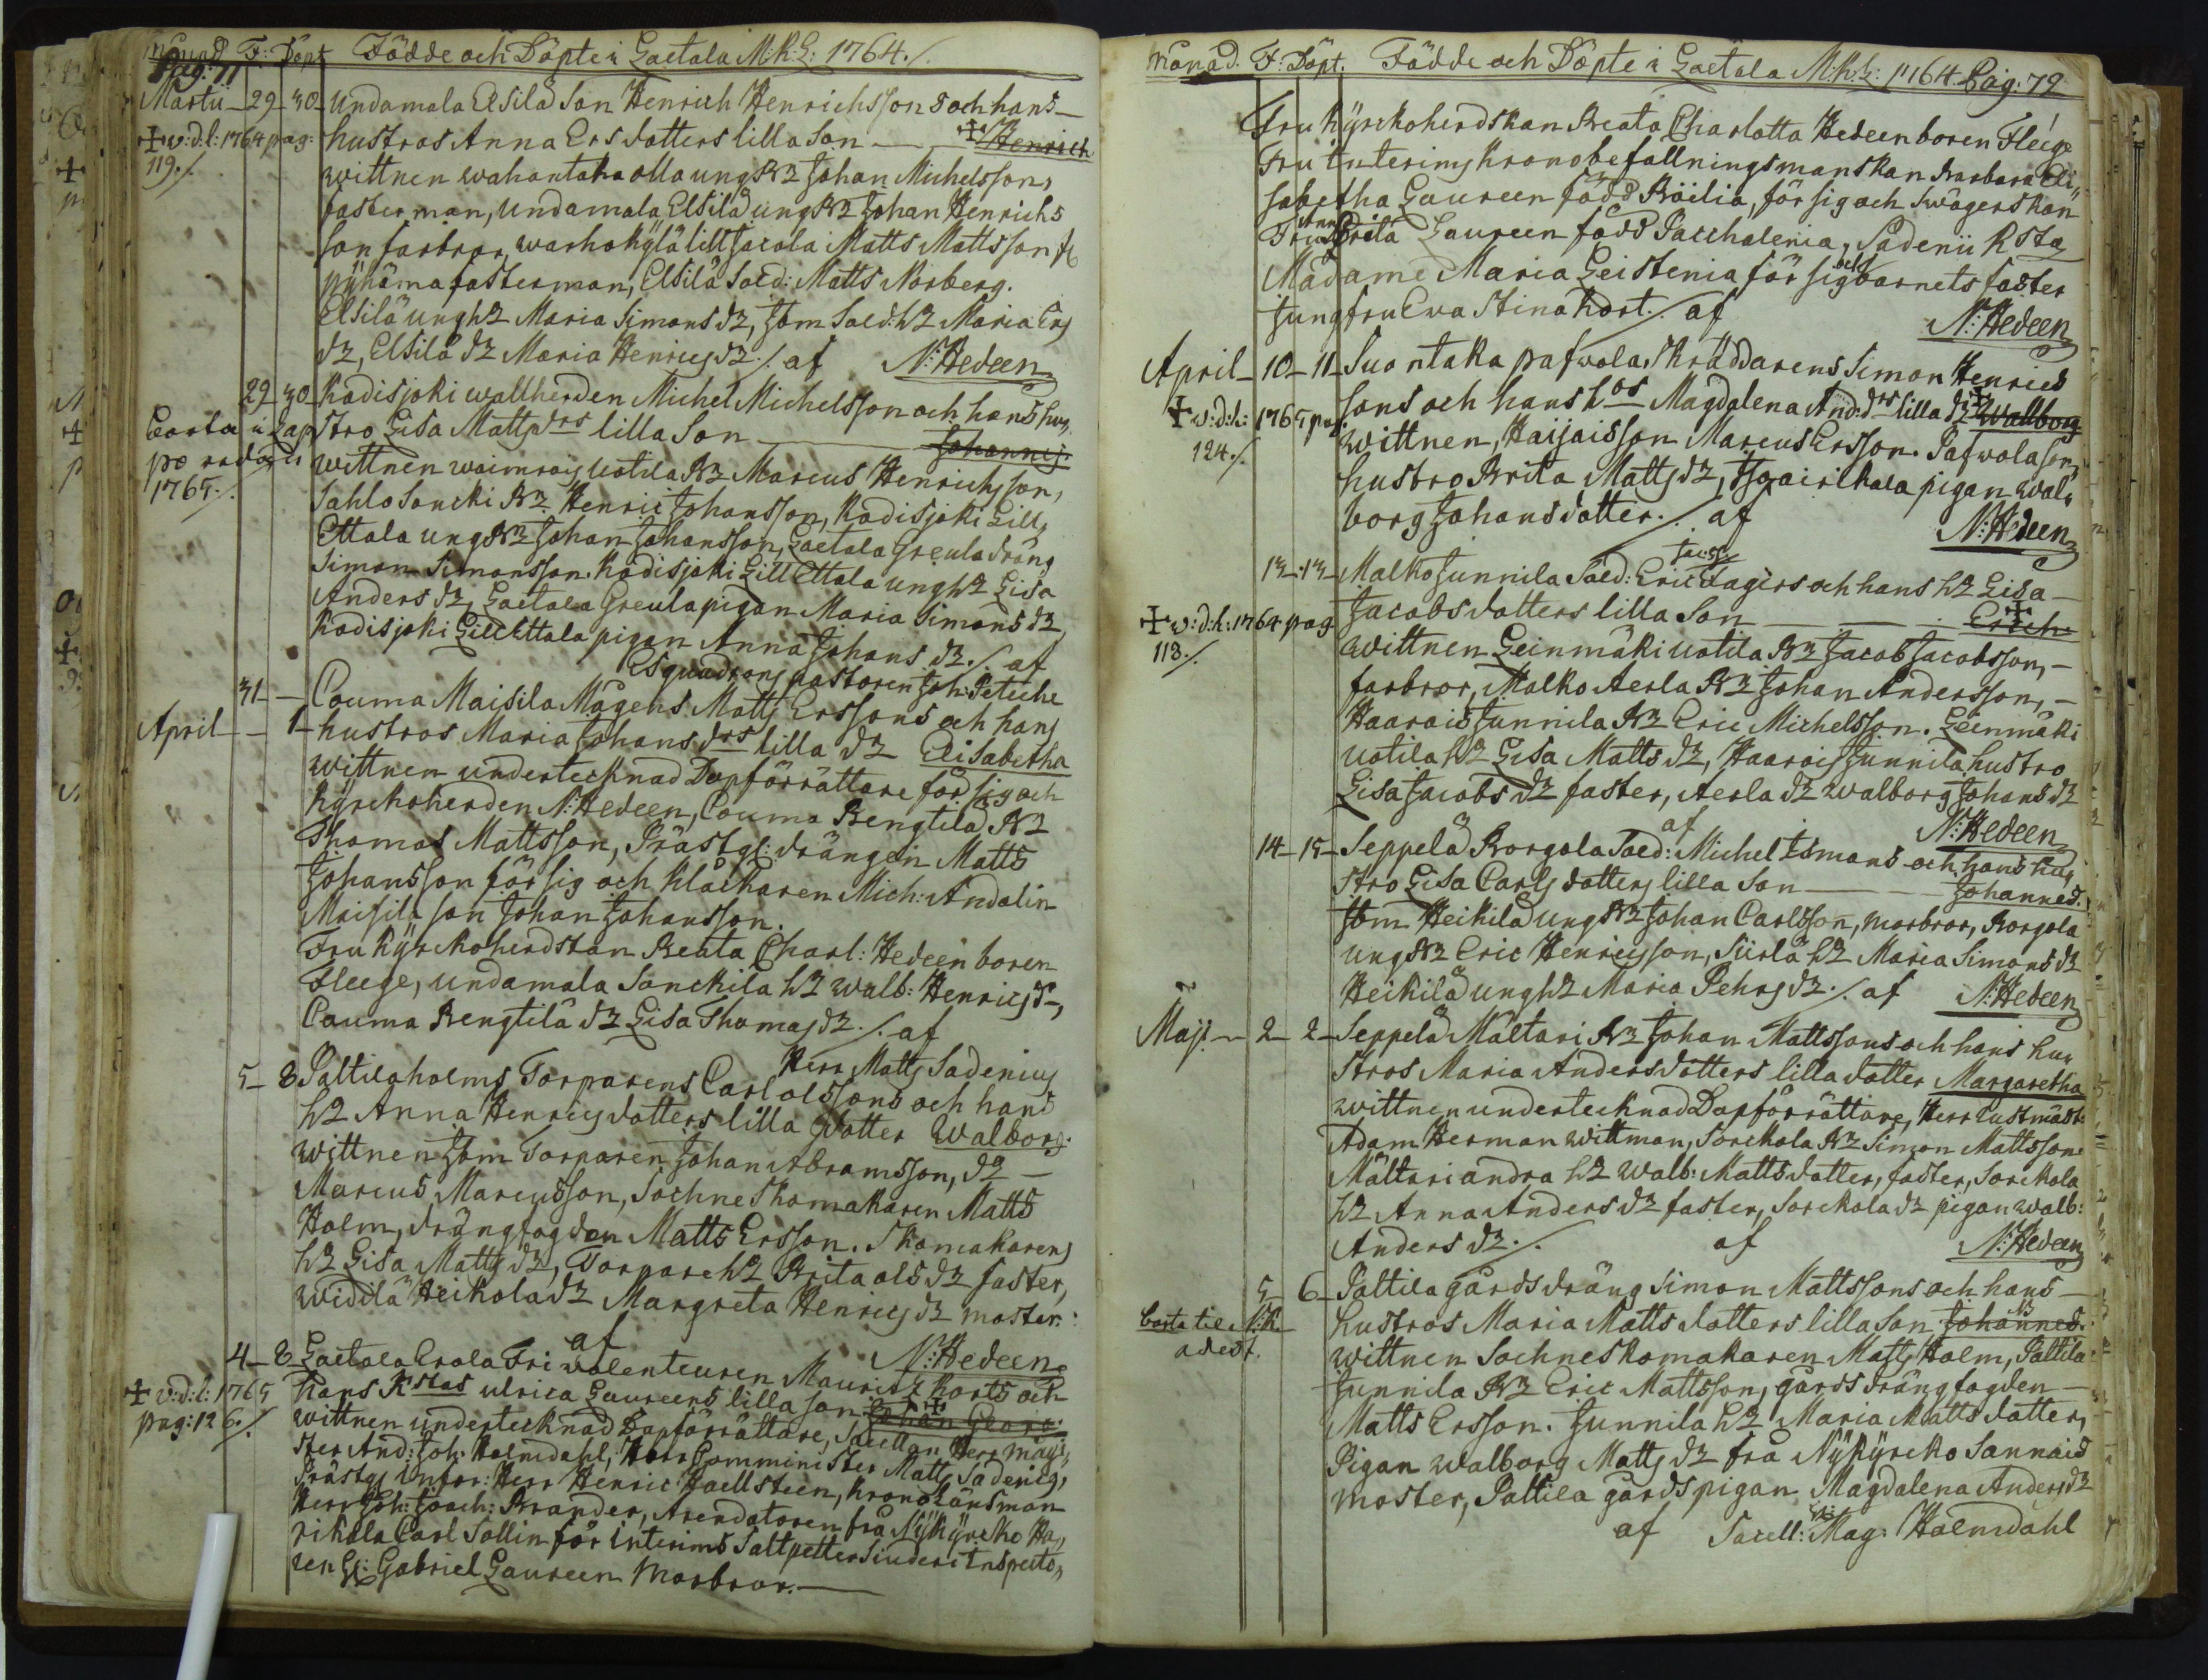 Månad F: Döpt Födde och Döpte i Laetala M:K:L: 1764./.
Pag: 71
Martii 29 30 Undamala Elsilä Son Henrich Henrichssons och hans
✝ v:d:l: 1764 pag: hustros Anna Ers dotters lilla Son ✝ Henrich
119./. wittnen wahantaka olla ung B2 Johan Michelsson,
faster man, Undamala Elsilä ung B2 Johan Henrichs
son farbror, warhokylä lill Jacola Matts Mattsson fr
pyhäma faster man, Elsilä Sold: Matts Norberg.
Elsilä ung h2 Maria Simons d2, Jom Sold: h2 Maria Ers
d2, Elsilä d2 Maria Henrics d2 ./. af N: Hedeen
29 30 Kadisjoki wallherden Michel Michelsson och hans hu,
Borta i Lap stro Lisa Matts drs lilla Son Johannes
wittnen waimrois uotila B2 Marcus Henrichsson,
1765./. Sahlo Soncki B2 Henric Johansson, Kadisjoki Lill
Ettala ung B2 Johan Johansson, Laetala Greula dräng
Simon Simonsson. Kadisjoki Lill Ettala ung h2 Lisa
Anders d2, Laetala Greula pigan Maria Simons d2
Kadisjoki Lill Ettala pigan Anna Johans d2 ./. af
Esquadrons pastoren Joh: Peteche
31 Couma Maisila Mågens Matts Erssons och hans
April 1 hustros Maria Johans drs lilla d2 Elisabetha
wittnen undertecknad Dopförrättare för sig och
Kyrckoherden N: Hedeen, Couma Bengtilä B2
Thomas Mattsson, Prästgl: drängen Matts
Johansson för sig och klåckaren Mich: Andalin
Maisila son Johan Johansson.
Fru Kyrckoherdskan Beata Charl: Hedeen boren
Fleege, undamala Sonckila h2 walb: Henrics d2,
Couma Bengtilä d2 Lisa Thomas d2 ./. af
Herr Matts Sadenius
5 8 Paltila holms Torparens Carl olssons och hans
h2 Anna Henrics dotters lilla dotter Walborg.
wittnen Jom Torparen Johan Abramsson, d2
Marcus Marcusson, Sochne Skomakaren Matts
Holm, dräng fogden Matts Ersson. Skomakarens
h2 Lisa Matts d2, Torpare h2 Brita ols d2 faster,
widilä Heikola d2 Margreta Henrics d2 moster.
af N: Hedeen
4 8 Laetala Erola Fri wolenteuren Mauritz Korts och
✝ v:d:l: 1765 hans K stas ulrica Laureens lilla son Johan Georg.
pag: 126./. wittnen undertecknad Dopförrättare, Sacellan Herr Magi,
ster And: Joh: Holmdahl, Herr Comminister Matts Sadenius,
Prästgs infor: Herr Henric Haellsteen, Krono Länsman
Herr Joh: Joach: Brander, Arendatoren frå Nykyrcko Ha,
rikala Carl Sollin för interims Saltpetter Siuderi Inspecto,
ren Gabriel Laureen Morbror.
Månad. F: Döpt. Födde och Döpte i Laetala M:K:L: 1764. Pag: 72
Fru Kyrckoherdskan Beata Charlotta Hedeen boren Fleege
Fru interims Kronobefallningsmanskan Barbara Eli,
sabetha Laureen född Bäilia, för sig och Swägerskan
Fru Anna Brita Laureen född Pacchalenia, Sadenii K sta
Madame Maria Leistenia för sig och barnets faster
Jungfru Ewa Stina Kort ./. af N: Hedeen
April 10 11 Suontaka pafwola Skräddarens Simon Henrics
✝ v:d:l: 1765 pag: sons och hans hos Magdalena And: drs lilla d2 ✝ Wallborg
124./. wittnen, Haijaisson Marcus Ersson. Pafwola son,
hustro Brita Matts d2, pigan wal,
borg Johans dotter ./. af N: Hedeen
13 13 Malko Junnila Sold: Eric Fagers och hans h2 Lisa
✝ v:d:l: 1764 pag. Jacobs dotters lilla Son ✝ Erich
118./. wittnen Leinmäki uotila B2 Jacob Jacobsson,
farbror, Malko Aerla B2 Johan Andersson,
Haarois Junnila B2 Eric Michelsson. Leinmäki
uotila h2 Lisa Matts d2, Haarois Junnila hustro
Lisa Jacobs d2 faster, Aerla d2 walborg Johans d2
af N: Hedeen
14 15 Seppelä Borgola Sold: Michel Esmans och hans hu,
stro Lisa Carls dotters lilla Son Johannes.
Jom Heikilä ung B2 Johan Carlsson, morbror, Borgola
ung B2 Eric Henricsson, Siirlä h2 Maria Simons d2
Heikilä ung h2 Maria Pehrs d2 ./. af N: Hedeen
Maji 2 2 Seppelä Mältari B2 Johan Mattssons och hans hu,
stros Maria Anders dotters lilla dotter Margaretha
wittnen undertecknad Dopförrättare, Herr Lustmäst:
Adam Herman Wittman, Sorckola B2 Simon Mattsson
Mältari andra h2 walb: Matts dotter, faster, Sorckola
h2 Anna Anders d2 faster, Sorckola d2 pigan walb:
Anders d2 ./. af N: Hedeen
5 6 Paltila gårds dräng Simon Mattssons och hans
borta til N:K. hustros Maria Matts dotters lilla Son Johannes.
wittnen Sochne Skomakaren Matts Holm, Paltila
Junnila B2 Eric Mattsson, gårds dräng fogden
Matts Ersson. Junnila h2 Maria Matts dotter,
Pigan walborg Matts d2 frå Nykyrcko Sannais
moster, Paltila gårds pigan Magdalena Anders d2
af Sacell: Mag: Holmdahl